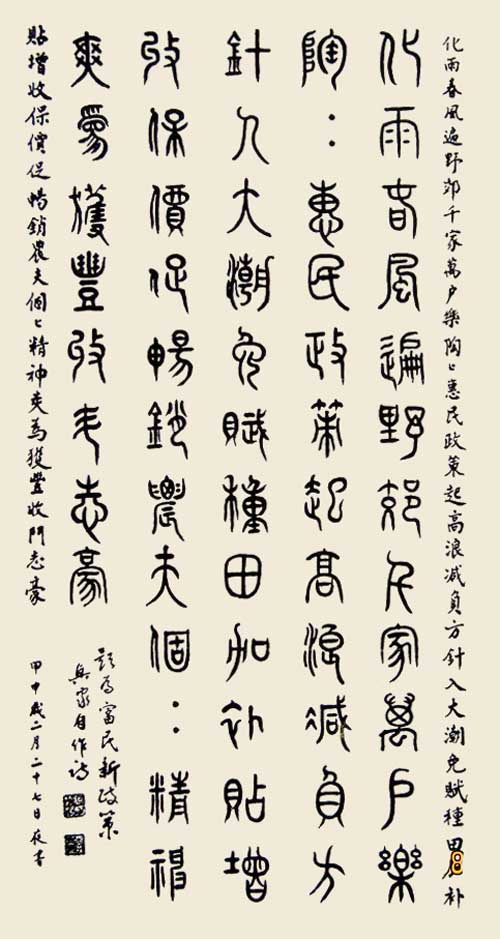 化雨春風遍野郊千家萬户樂陶〻惠民政策起高浪减負方針入大潮免賦種田补
化雨春風遍野郊千家萬户樂
陶：惠民政策起高浪减負方
針入大潮免賦種田加补貼增
收保價促暢銷農夫個：精神
爽為獲豐收斗志豪
貼增收保價促暢銷農夫個〻精神爽為獲豐收鬥志豪
題為富民新政策
家自作詩
甲申歲二月二十七日夜書